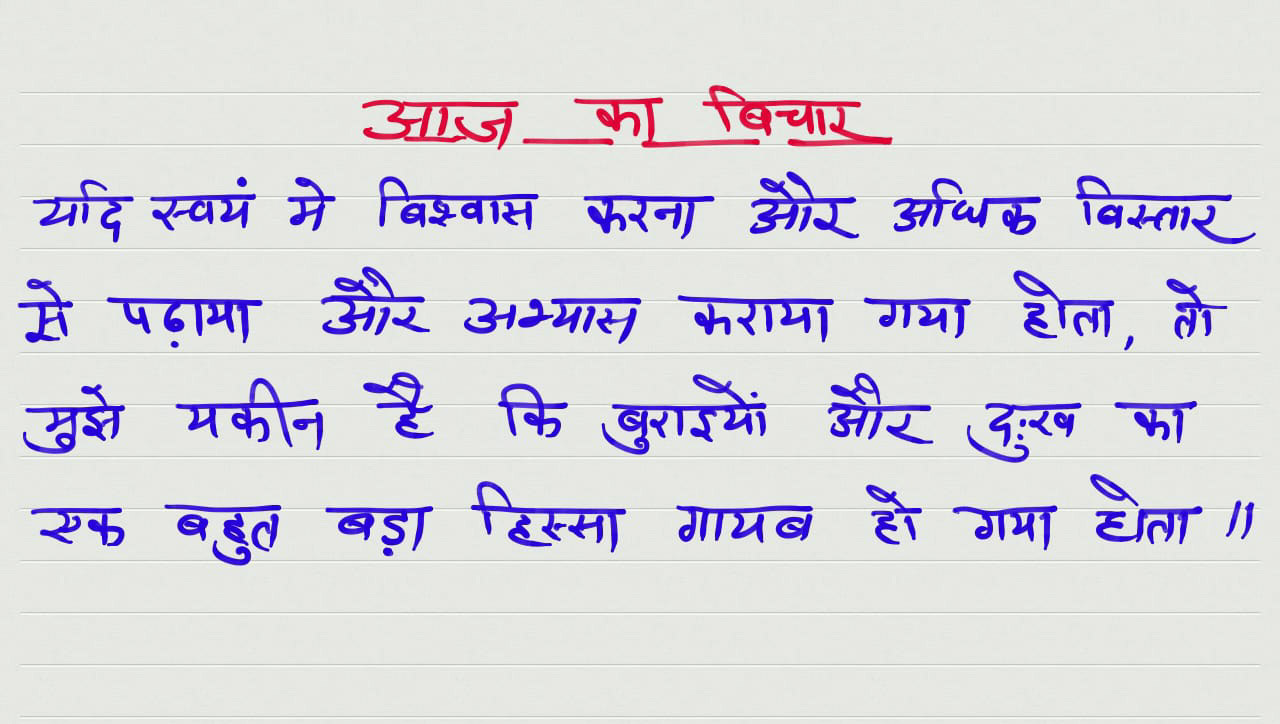 आज का बिचार
यदि स्वयं मे विश्वास करना और अधिक विस्तार
से पढ़ाया और अभ्यास कराया गया होता, तो
मुझे यकीन है कि बुराइयों और दुःख का
एक बहुत बड़ा हिस्सा गायब हो गया होता ॥